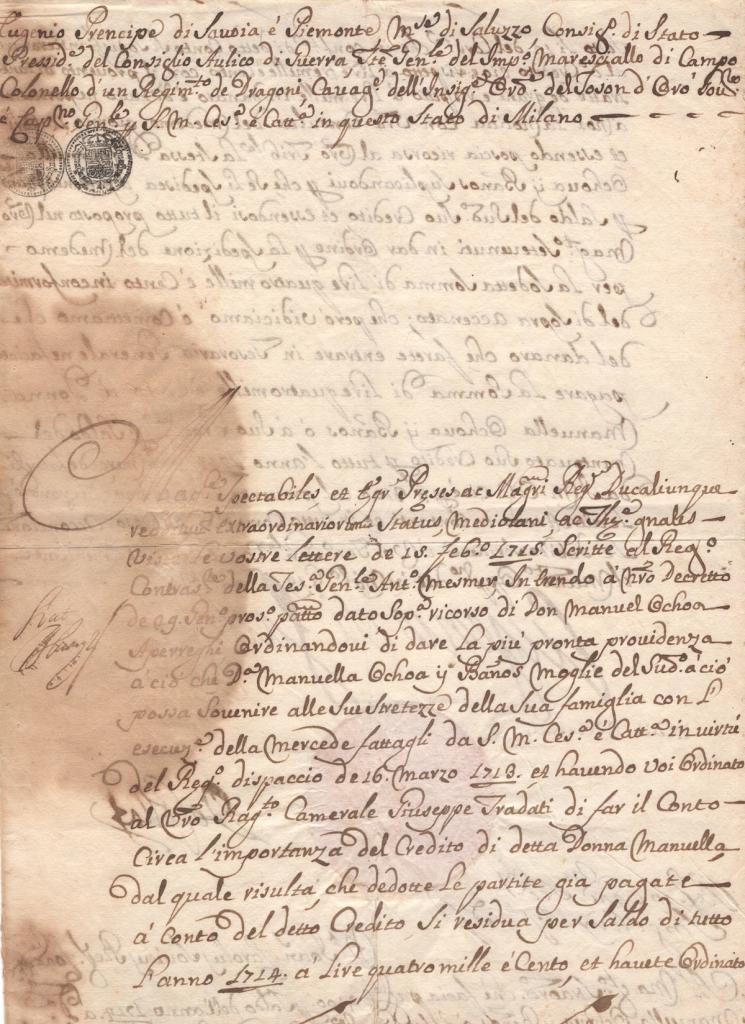 Eugenio Prencipe di Savoia é Piemonte Mse di Saluzzo, Consigo. di Stato
Pressido. del Consiglio Aulico di Guerra, Tte. Genle. del Impo. Maresciallo di Campo
Colonello d'un Regimto. de Dragoni, Cavago. dell'Insigo. Ordo. del Toson d'Oro
é Capno. Genle. S. M. Ceso. é Catto. in questo Stato di Milano
Spectabiles et Egri Preses ac Magri Rego Ducaliunque
extraordinariorum Status Mediolani ac
vostre lettere de 15. febo. 1715. Scritte al Rego.
della Teso. Genle. Anto. Mesmer, Intrendo á Decretto
dato Sopo. ricorso di Don Manuel Ochoa
Aperreghi Ordinandovi di dare La piú pronta providenza
á ció che Da. Manuella Ochoa y Baños Moglie del Sudo. ació
possa Sovenire alle Sue Stretezze della Sua famiglia con L
della Mercede fattagli da S. M. Ceso. é Catto. in virtú
del Rego. dispaccio de 16. Marzo 1713. et havendo Voi Ordinato
al Vro Ragto. Camerale Giuseppe Tradati di far il Conto
Circa L'importanza del Credito di detta Donna Manuella
dal quale risulta, che dedotte Le partite gia pagate
á Conto del detto Credito Si residua per Saldo di tutto
L'anno 1714. á Lire quatro mille é Cento, et havete Ordinato